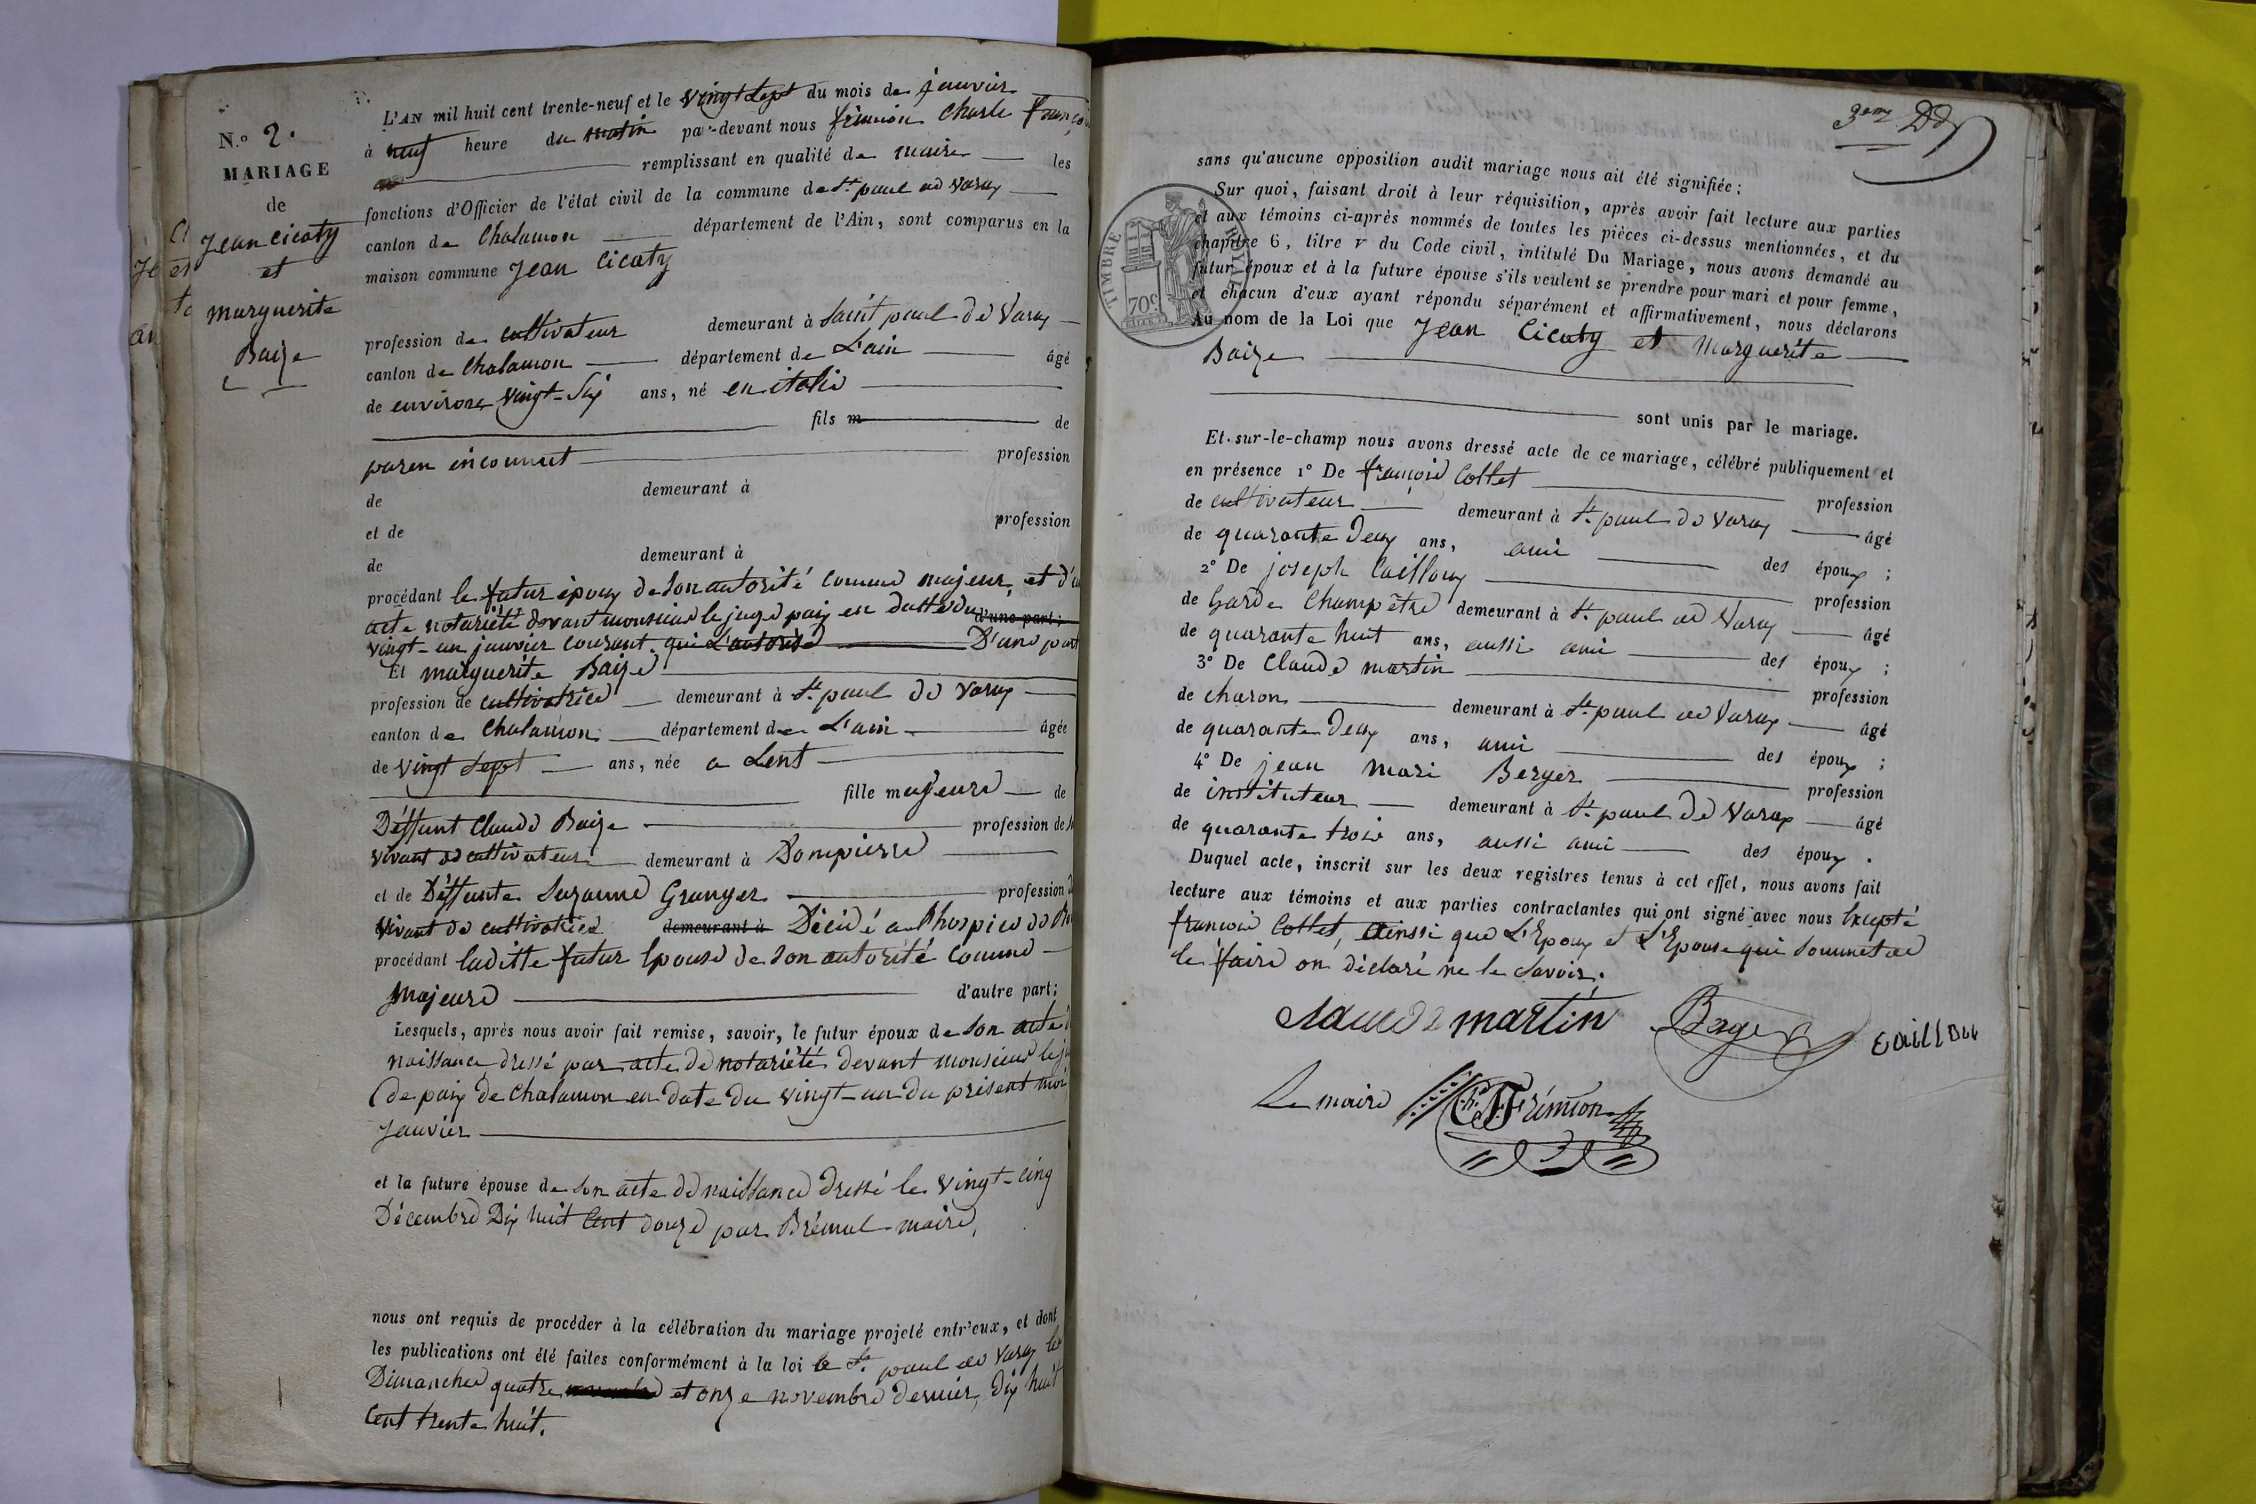 N.º 2.
MARIAGE
de
Jean Cicoty
et
Marguerite
Baize
L'AN mil huit cent trente-neuf et le vingt sept du mois de janvier
à neuf heure du matin par-devant nous frémion Charle françois
remplissant en qualité de maire les
fonctions d'Officier de l'état civil de la commune de St. paul de Varax
canton de Chalamon département de l'Ain, sont comparus en la
maison commune Jean Cicoty
profession de cultivateur demeurant à Saint paul de Varax
canton de Chalamon département de L'ain âgé
de environ vingt-six ans, né en italie
fils de
paren inconnut profession
de demeurant à
et de profession
de demeurant à
procédant le futur époux de son autorité comme majeur, et d'un
acte notariété devant monsieur le juge paix en datte du d'une part;
vingt-un janvier courant. qui L'autorise D'une part
Et marguerite Baize
profession de cultivatrice demeurant à St. paul de Varax
canton de Chalamon département de L'ain âgée
de vingt sept ans, née a Lent
fille majeure de
Déffunt Claude Baize profession de
vivant de cultivateur demeurant à Dompierre
et de Déffunte Suzanne Granger profession
vivant de cultivatrice demeurant à Décédé a Lhospice de
procédant laditte futur Epouse de son autorité comme
majeure d'autre part;
Lesquels, après nous avoir fait remise, savoir, le futur époux de son acte
naissance dressé par acte de notariété devant monsieur le
de paix de Chalamon en date du vingt-un du présent moi
Janvier
et la future épouse de son acte de naissance dressé le vingt-cinq
Décembre Dix huit Cent douze par Brémal maire,
nous ont requis de procéder à la célébration du mariage projeté entr'eux, et dont
les publications ont été faites conformément à la loi a St. paul de Varax les
Dimanche quatre et onze novembre dernier, dix huit
Cent trente huit.
3em
sans qu'aucune opposition audit mariage nous ait été signifiée;
Sur quoi, faisant droit à leur réquisition, après avoir fait lecture aux parties
et aux témoins ci-après nommés de toutes les pièces ci-dessus mentionnées, et du
chapitre 6, titre v du Code civil, intitulé Du Mariage, nous avons demandé au
futur époux et à la future épouse s'ils veulent se prendre pour mari et pour femme,
et chacun d'eux ayant répondu séparément et affirmativement, nous déclarons
Au nom de la Loi que Jean Cicoty et Marguerite
Baize
TIMBRE ROYAL
70c
sont unis par le mariage.
Et sur-le-champ nous avons dressé acte de ce mariage, célébré publiquement et
en présence 1º De françois Collet profession
de cultivateur demeurant à St. paul de Varax âgé
de quarante deux ans, ami des époux;
2º De joseph Cailloux profession
de Garde Champêtre demeurant à St. paul de Varax âgé
de quarante huit ans, aussi ami des époux;
3º De Claude martin profession
de charon demeurant à St. paul de Varax âgé
de quarante deux ans, ami des époux;
4º De jean Mari Berger profession
de instituteur demeurant à St. paul de Varax âgé
de quarante trois ans, aussi ami des époux.
Duquel acte, inscrit sur les deux registres tenus à cet effet, nous avons fait
lecture aux témoins et aux parties contractantes qui ont signé avec nous Excepté
francois Collet, ainsi que L'Epoux et L'Epouse qui sommés de
le faire on déclaré ne le savoir.
Claude martin Berger Caillou
Le maire Ch. F. Frémion